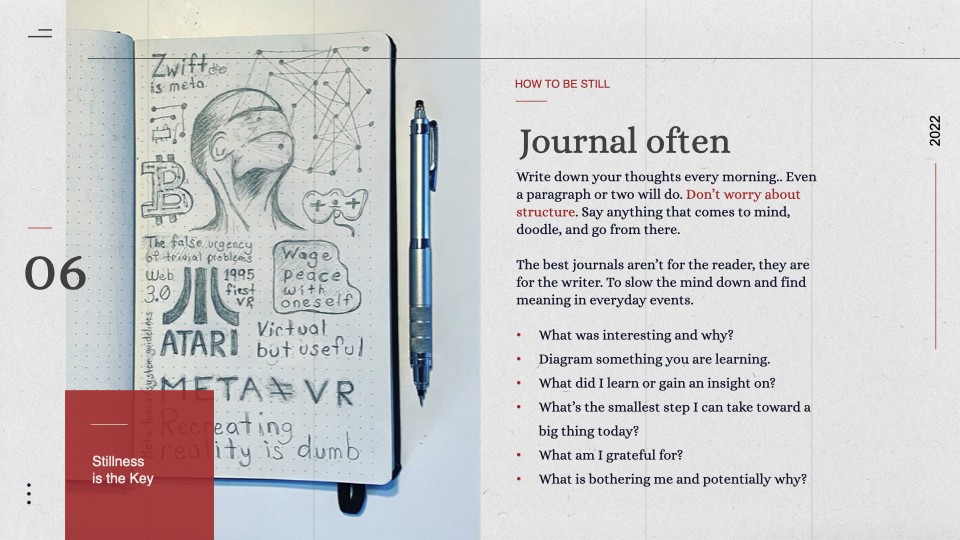 HOW TO BE STILL
Journal often
Write down your thoughts every morning.. Even
a paragraph or two will do. Don't worry about
structure. Say anything that comes to mind,
doodle, and go from there.
The best journals aren't for the reader, they are
for the writer. To slow the mind down and find
meaning in everyday events.
• What was interesting and why?
• Diagram something you are learning.
• What did I learn or gain an insight on?
• What's the smallest step I can take toward a
big thing today?
• What am I grateful for?
• What is bothering me and potentially why?
2022
06
Stillness
is the Key
Zwift
is meta.
The false urgency
of trivial problems
Web
3.0
1995
first
VR
Wage
peace
with
oneself
ATARI
Virtual
but useful
META ≠ VR
Recreating
reality is dumb